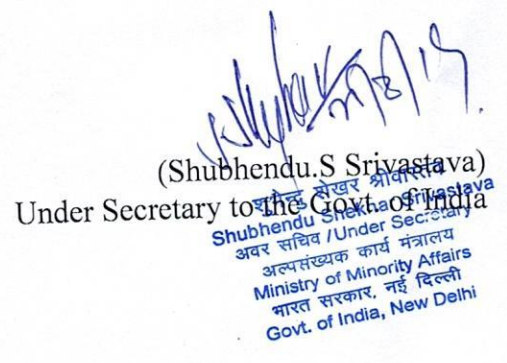 (Shubhendu.S Srivastava)
Under Secretary to the Govt. of India
शुभेन्दु शेखर श्रीवास्तव
Shubhendu Shekhar Srivastava
अवर सचिव /Under Secretary
अल्पसंख्यक कार्य मंत्रालय
Ministry of Minority Affairs
भारत सरकार, नई दिल्ली
Govt. of India, New Delhi